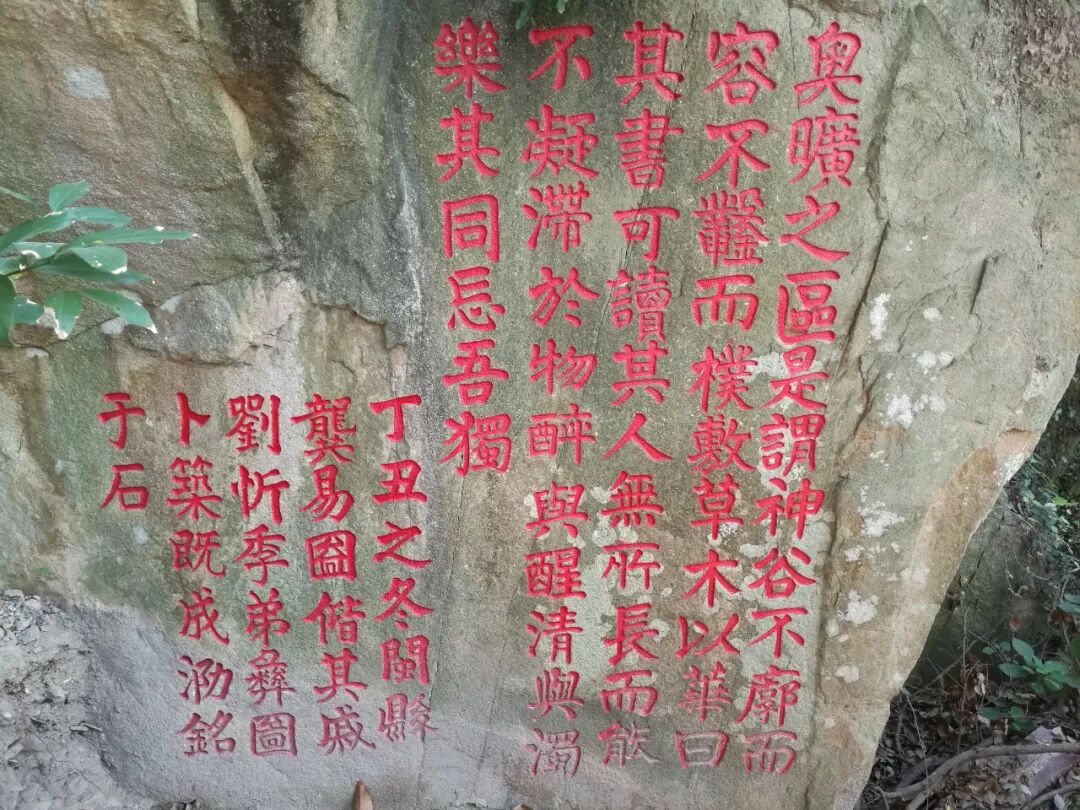 奧曠之區是謂神谷不廓而
容不鑿而樸敷草木以華曰
其書可讀其人無所長而能
不凝滯於物醉與醒清與濁
樂其同忘吾獨
丁丑之冬閩縣
龔易圖偕其戚
劉忻季弟彝圖
卜築既成泐銘
于石